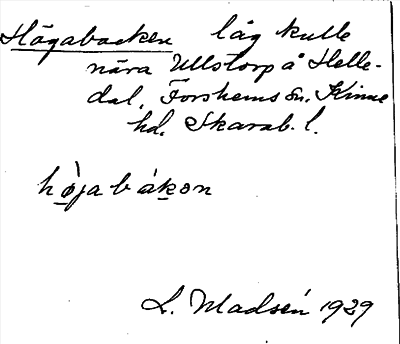 Högabacken låg kulle
nära Ullstorp å Helle-
dal, Forshems sn. Kinne
hd. Skarab. l.
højabákon
L. Madsén 1929